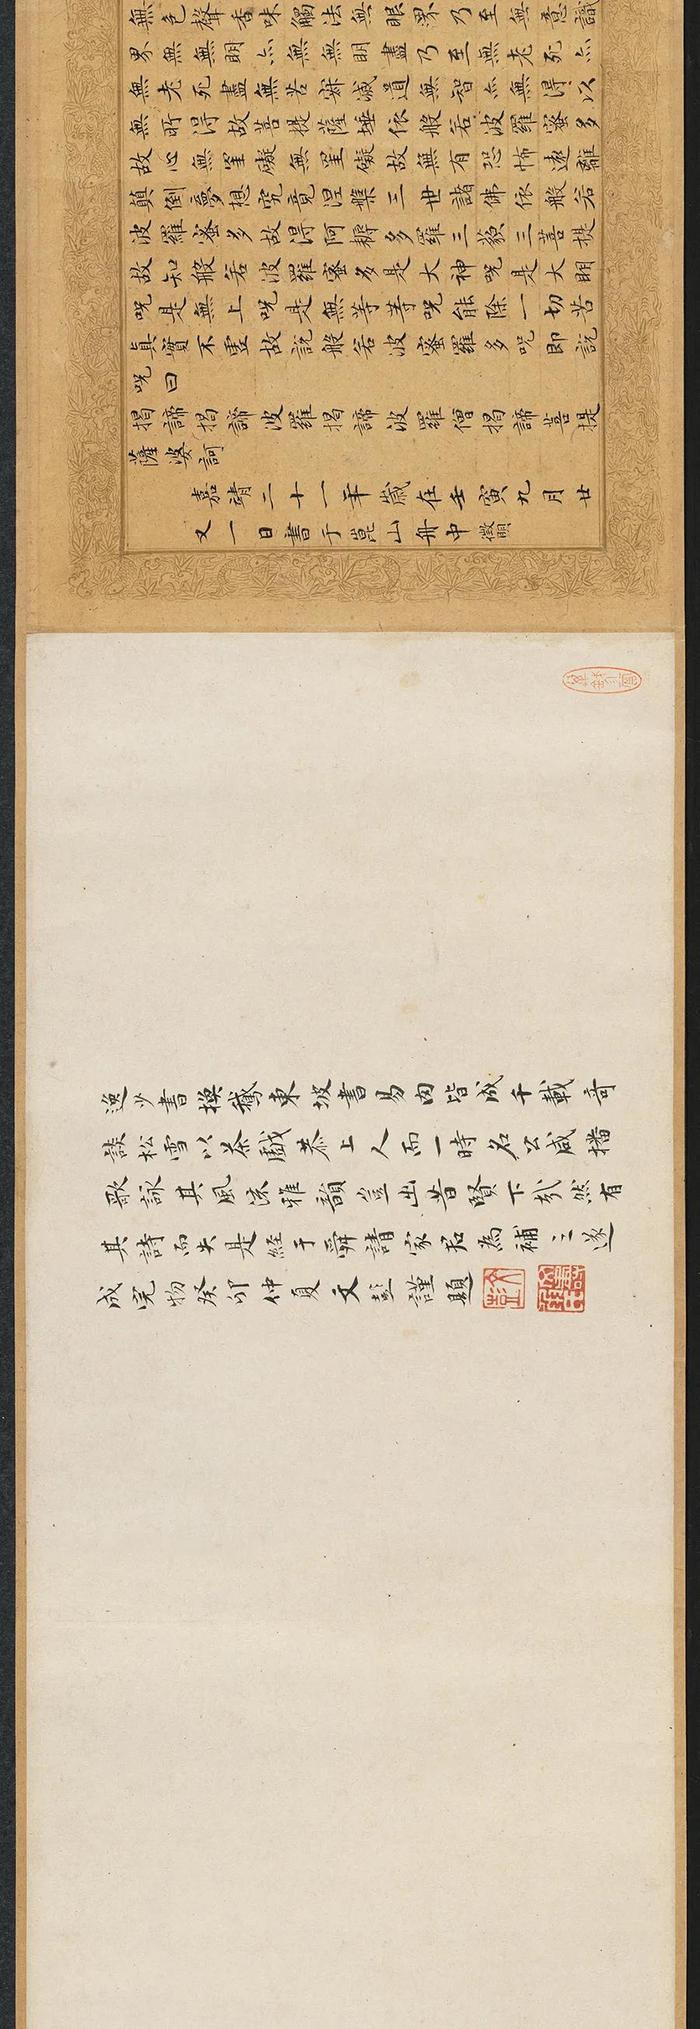 無色聲香味觸法無眼界乃至無意識
界無無明亦無無明盡乃至無老死亦
無老死盡無苦寂滅道無智亦無得以
無所得故菩提薩埵依般若波羅蜜多
故心無罣礙無罣礙故無有恐怖遠離
顛倒夢想究竟涅槃三世諸佛依般若
波羅蜜多故得阿耨多羅三藐三菩提
故知般若波羅蜜多是大神呪是大明
呪是無上呪是無等等呪能除一切苦
真實不虛故說般若波蜜羅多呪即說
呪曰
揭諦揭諦波羅揭諦波羅僧揭諦菩提
薩婆訶
嘉靖二十一年歲在壬寅九月廿
又一日書于崑山舟中徵明
逸少書換鵝東坡書易肉皆成千載奇
談松雪以茶戲恭上人而一時名公咸播
歌詠其風流雅韻豈出昔賢下哉然有
其詩而失是經于舜請家君為補之遂
成完物癸卯仲夏文彭謹題
文彭